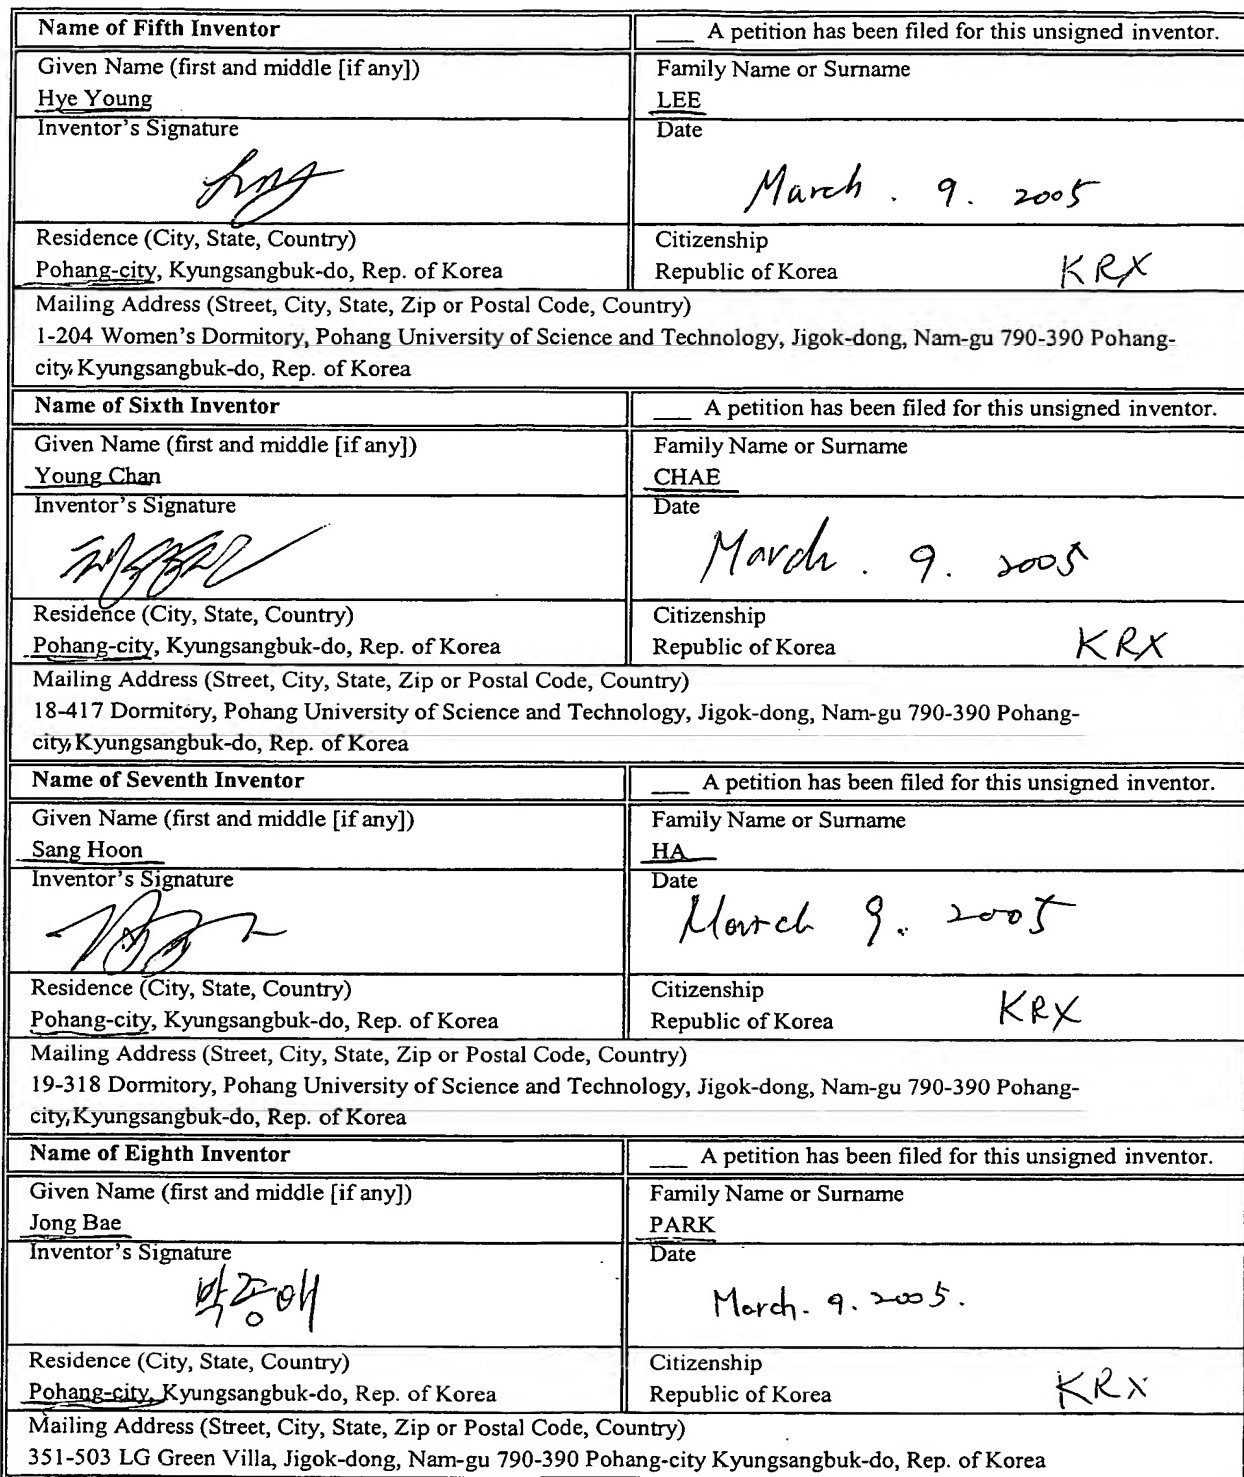 Name of Fifth Inventor
___ A petition has been filed for this unsigned inventor.
Given Name (first and middle [if any])
Family Name or Surname
Hye Young
LEE
Inventor's Signature
Date
March. 9. 2005
Residence (City, State, Country)
Citizenship
Pohang-city, Kyungsangbuk-do, Rep. of Korea
Republic of Korea KRX
Mailing Address (Street, City, State, Zip or Postal Code, Country)
1-204 Women's Dormitory, Pohang University of Science and Technology, Jigok-dong, Nam-gu 790-390 Pohang-
city, Kyungsangbuk-do, Rep. of Korea
Name of Sixth Inventor
___ A petition has been filed for this unsigned inventor.
Given Name (first and middle [if any])
Family Name or Surname
Young Chan
CHAE
Inventor's Signature
Date
March. 9. 2005
Residence (City, State, Country)
Citizenship
Pohang-city, Kyungsangbuk-do, Rep. of Korea
Republic of Korea KRX
Mailing Address (Street, City, State, Zip or Postal Code, Country)
18-417 Dormitory, Pohang University of Science and Technology, Jigok-dong, Nam-gu 790-390 Pohang-
city, Kyungsangbuk-do, Rep. of Korea
Name of Seventh Inventor
___ A petition has been filed for this unsigned inventor.
Given Name (first and middle [if any])
Family Name or Surname
Sang Hoon
HA
Inventor's Signature
Date
March 9. 2005
Residence (City, State, Country)
Citizenship
Pohang-city, Kyungsangbuk-do, Rep. of Korea
Republic of Korea KRX
Mailing Address (Street, City, State, Zip or Postal Code, Country)
19-318 Dormitory, Pohang University of Science and Technology, Jigok-dong, Nam-gu 790-390 Pohang-
city, Kyungsangbuk-do, Rep. of Korea
Name of Eighth Inventor
___ A petition has been filed for this unsigned inventor.
Given Name (first and middle [if any])
Family Name or Surname
Jong Bae
PARK
Inventor's Signature
Date
March. 9. 2005.
Residence (City, State, Country)
Citizenship
Pohang-city, Kyungsangbuk-do, Rep. of Korea
Republic of Korea KRX
Mailing Address (Street, City, State, Zip or Postal Code, Country)
351-503 LG Green Villa, Jigok-dong, Nam-gu 790-390 Pohang-city Kyungsangbuk-do, Rep. of Korea